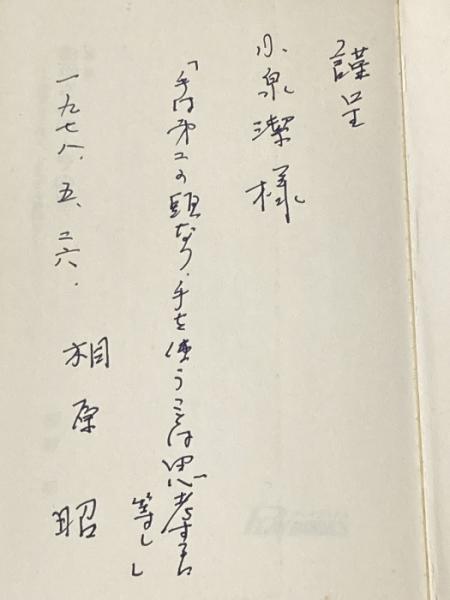 謹呈
小泉潔様
「手は第二の頭なり.手を使うことは思考するに
等しい」
一九七八、五、二六.
相原昭